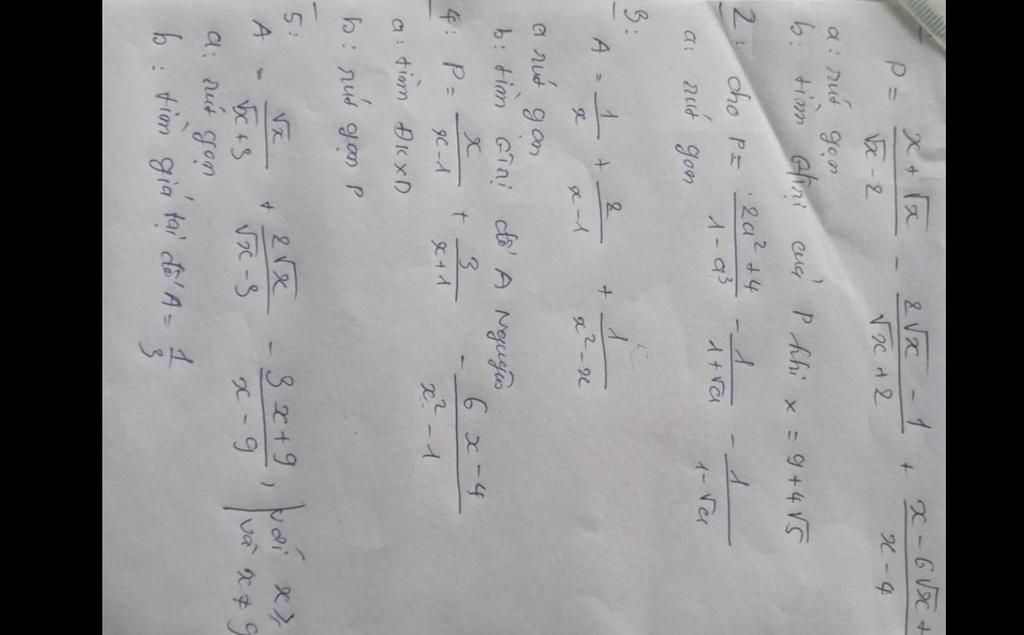 P = \frac{x+\sqrt{x}}{\sqrt{x}-2} - \frac{2\sqrt{x}-1}{\sqrt{x}+2} + \frac{x-6\sqrt{x}+}{x-4}
a: rút gọn
b: tìm gtrị của P khi x = 9+4\sqrt{5}
2: cho P = \frac{2a^2+4}{1-a^3} - \frac{1}{1+\sqrt{a}} - \frac{1}{1-\sqrt{a}}
a: rút gọn
3:
A = \frac{1}{x} + \frac{2}{x-1} + \frac{1}{x^2-x}
a rút gọn
b: tìm gtrị để A nguyên
4: P = \frac{x}{x-1} + \frac{3}{x+1} - \frac{6x-4}{x^2-1}
a: tìm ĐKXD
b: rút gọn P
5:
A = \frac{\sqrt{x}}{\sqrt{x}+3} + \frac{2\sqrt{x}}{\sqrt{x}-3} - \frac{3x+9}{x-9}, với x ≥
và x ≠ 9
a: rút gọn
b: tìm giá tại để A = \frac{1}{3}